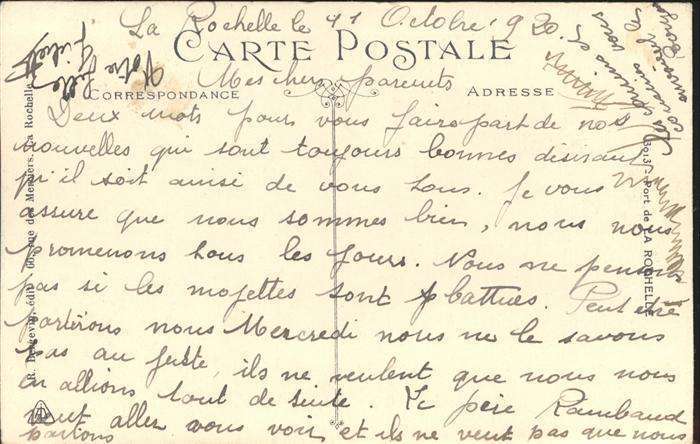 La Rochelle le 11 Octobre 1920.
CARTE POSTALE
Mes chers parents
CORRESPONDANCE
ADRESSE
Deux mots pour vous faire part de nos
nouvelles qui sont toujours bonnes désirant
qu'il soit ainsi de vous tous. Je vous
assure que nous sommes bien, nous nous
promenons tous les jours. Nous ne pensons
pas si les mojettes sont battues. Peut être
partirons nous Mercredi nous ne le savons
pas au juste, ils ne veulent que nous nous
en allions tout de suite. Le père Rambaud
veut aller vous voir et ils ne veut pas que nous
partions
Votre fille
Les cousins et
cousines vous
envoient le
R. Bergevin, édit., 60, rue des Merciers, La Rochelle
3013 - Port de LA ROCHELLE